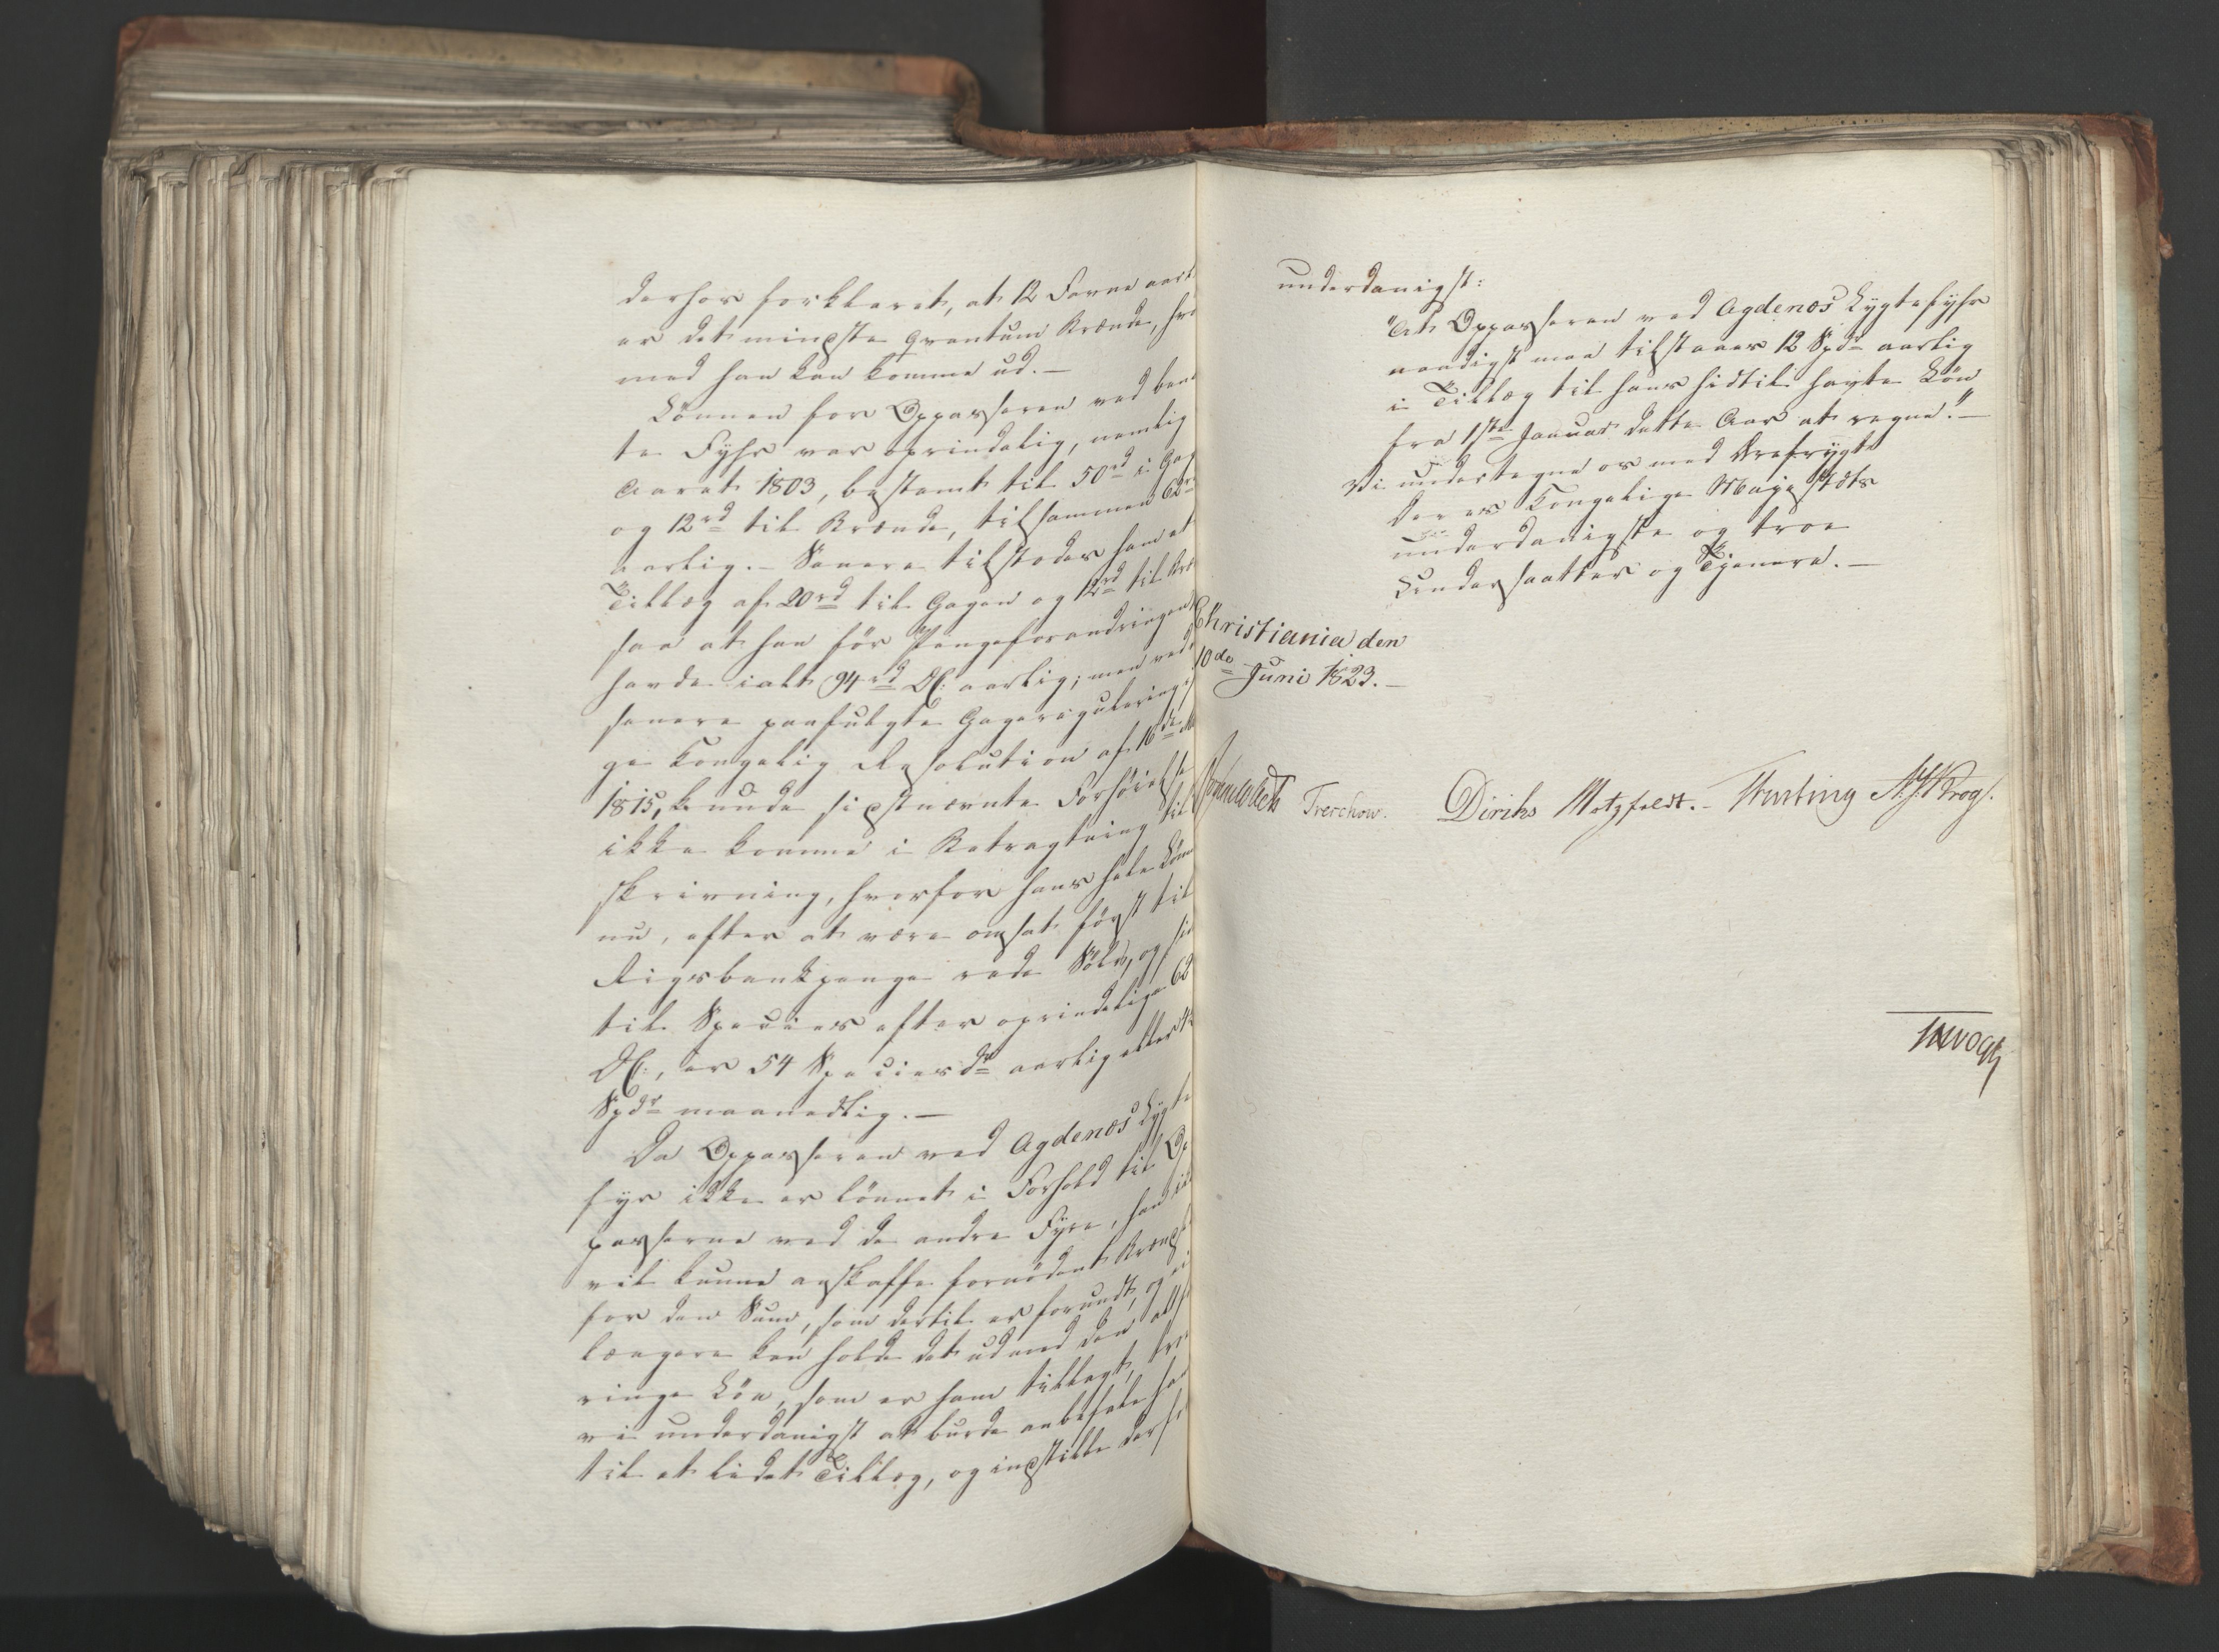 derhos forklaret, at 12 Favne aarl
er det mindste Qvantum Brænde, hvor
med han kan komme ud. —
Lønnen for Oppasseren ved bem
te Fyhr var oprindelig, nemlig
Aaret 1803, bestemt til 50 rd i Gag
og 12 rd til Brænde, tilsammen 62 r
aarlig. – Senere tilstodes ham et
Tillæg af 20 rd til Gagen og 12 rd til Bræ
saa at han før Pengeforandringen
havde ialt 94 rd DC: aarlig; men ved
senere paafulgte Gageregulering i
ge Kongelig Resolution af 16de M
1815, kunde sidstnævnte Forhøielse
ikke komme i Betragtning til
skrivning, hvorfor hans hele Løn
nu, efter at være omsat først til
Rigsbankpenge rede Sølv, og si
til Species efter oprindelige 62
DC:, er 54 Speciesdr aarlig eller 4½
Spdr maanedlig. —
Da Oppasseren ved Agdenæs Lygte
fyr ikke er lønnet i Forhold til Op
passerne ved de andre Fyre, han ik
vil kunne anskaffe fornødent Brænds
for den Sum, som dertil er forundt, og ei
længere kan holde det ud med den alt
ringe Løn, som er ham tillagt, tro
vi underdanigst at burde anbefale ha
til et lidet Tillæg, og indstille ders
underdanigst:
"At Oppasseren ved Agdenæs Lygtefyhr
naadigst maa tilstaaes 12 Spd aarlig
i Tillæg til hans hidtil havte Løn
fra 1ste Januar dette Aar at regne." —
Vi undertegne os med Ærefrygt
Deres Kongelige Majestæts
underdanigste og troe
Undersaatter og Tjenere. —
Christiania den
10de Juni 1823. —
Treschow. Diriks Motzfeldt. – Krog.
Vogt